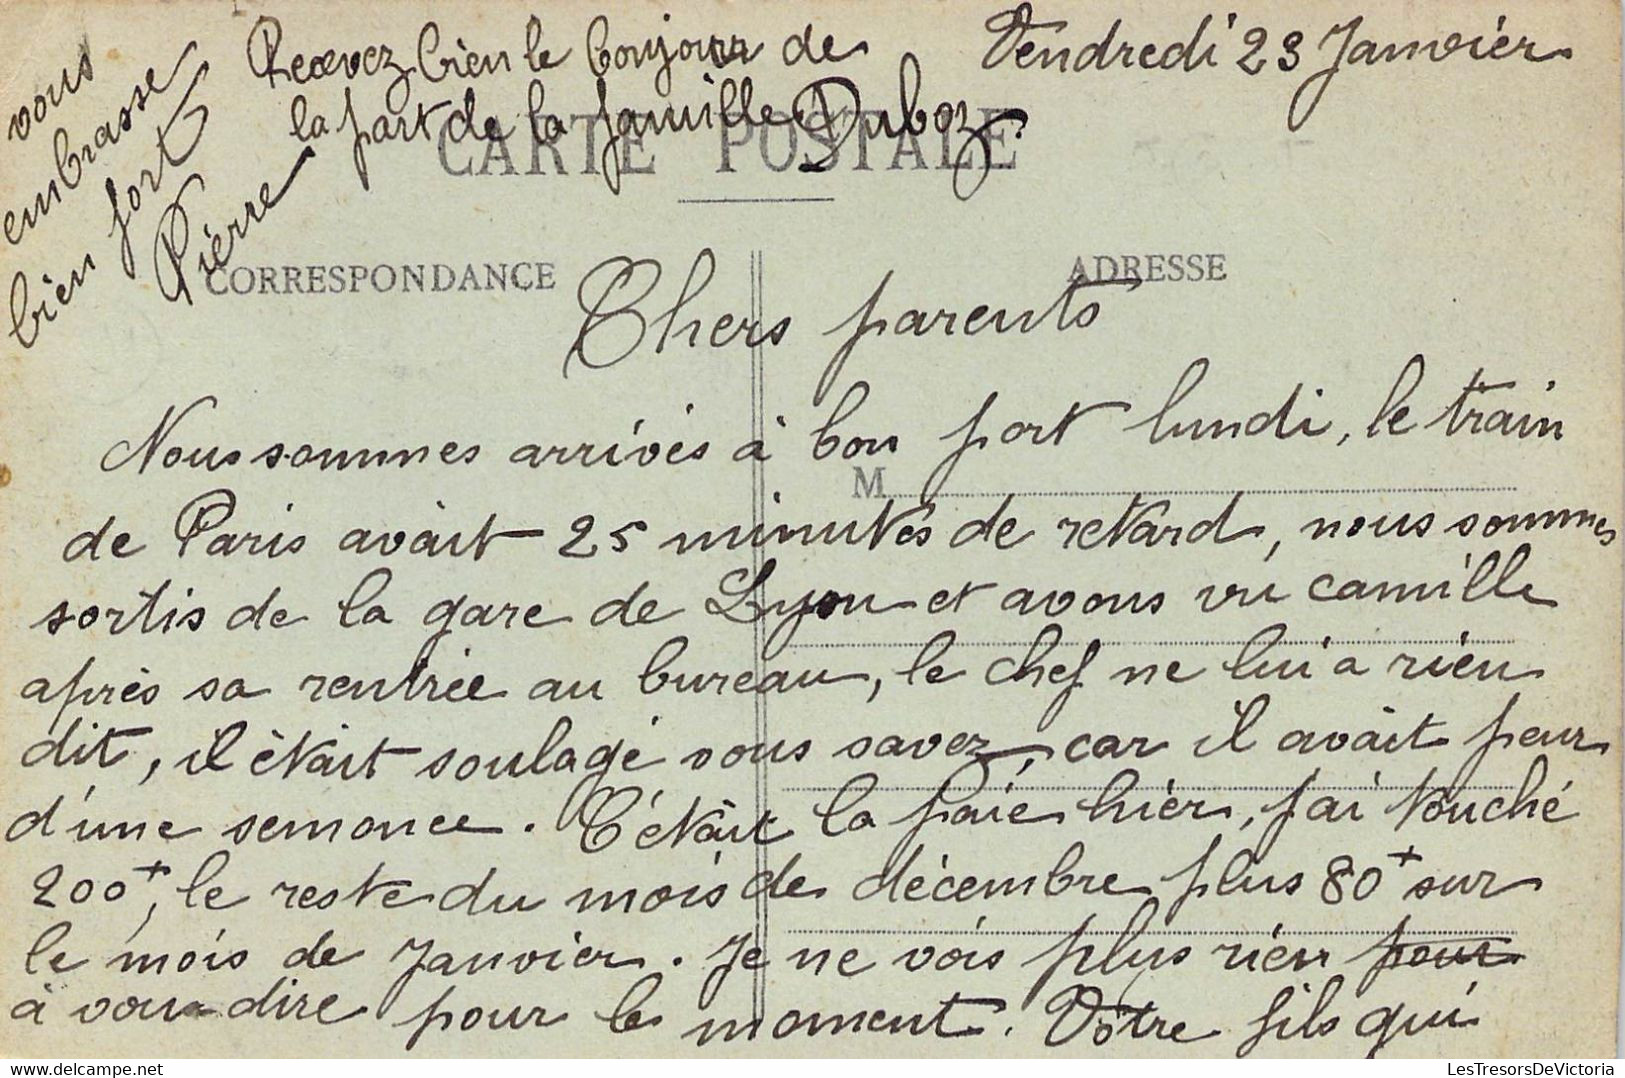 Vendredi 23 Janvier
CARTE POSTALE
CORRESPONDANCE
ADRESSE
M
Chers parents
Nous sommes arrivés à bon port lundi, le train
de Paris avait 25 minutes de retard, nous sommes
sortis de la gare de Lyon et avons vu camille
après sa rentrée au bureau, le chef ne lui a rien
dit, il était soulagé vous savez, car il avait peur
d'une semonce. C'était la paie hier, j'ai touché
200+, le reste du mois de décembre plus 80+ sur
le mois de Janvier. Je ne vois plus rien pour
à vous dire pour le moment. Votre fils qui
vous
embrasse
bien fort
Pierre
Recevez bien le bonjour de
la part de la famille Duboz.
LesTresorsDeVictoria